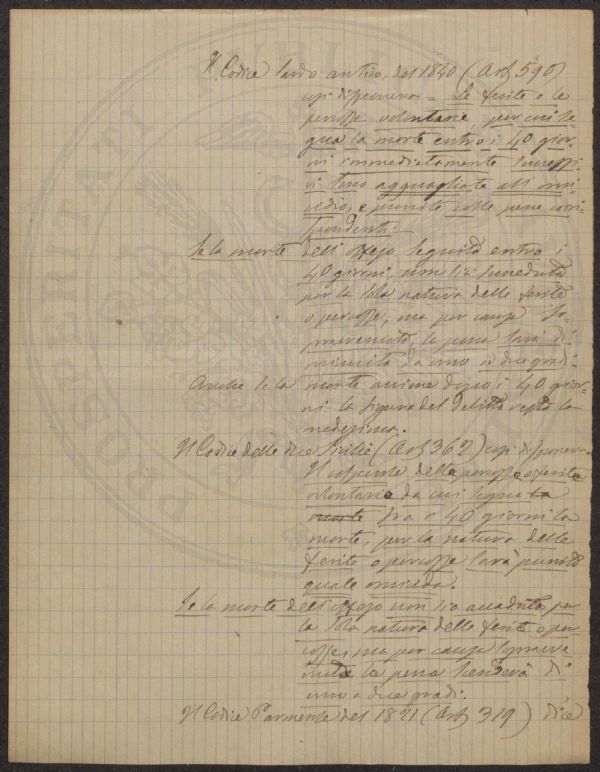 Il Codice Sardo antico, del 1840 (Art 590)
così disponeva = Le ferite o le
percosse volontarie per cui se-
gua la morte entro i 40 gior-
ni immediatamente successi-
vi sono agguagliate all' omi-
cidio, e punite colle pene corri-
spondenti.-
Se la morte dell' offeso seguita entro i
40 giorni, non sia succeduta
per la sola natura delle ferite
o percosse, ma per causa so-
pravvenuta, la pena sarà di-
minuita da uno a due gradi.
Anche se la morte avviene dopo i 40 gior-
ni la figura del delitto resta la
medesima.
Il Codice delle due Sicilie (Art 362) così disponeva
Il colpevole delle percosse o ferite
volontarie da cui segua la
morte fra i 40 giorni la
morte, per la natura delle
ferite o percosse sarà punito
quale omicida.
Se la morte dell' offeso non sia accaduta per
la sola natura delle ferite o per-
cosse, ma per causa sopravve-
nuta la pena scenderà di
uno a due gradi.
Il Codice Parmense del 1821 (Art 319) dice